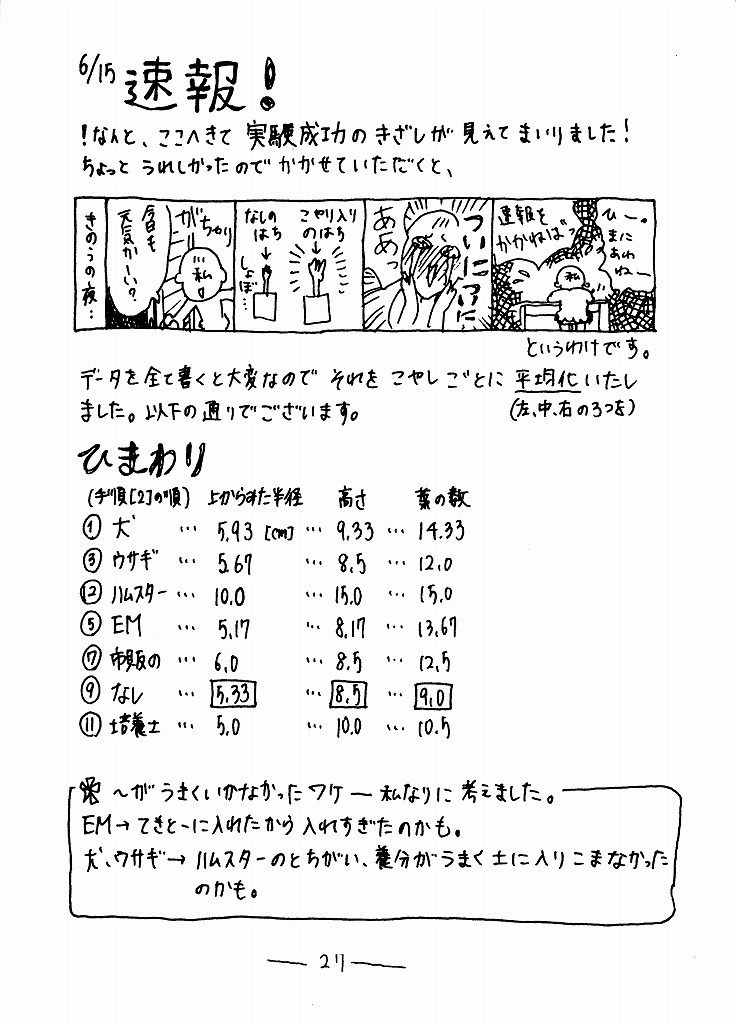 6/15 速報！
！なんと、ここへきて 実験成功の きざしが 見えて まいりました！
ちょっと うれしかったので かかせていただくと、
きのうの夜…
今日も
元気かーい？
がちゃり
私
なしの
はち
しょぼ…
こやし入り
のはち
ついにアに
ああっ
速報を
かかねばっ
ひー。
まに
あわ
ねー
私
というわけです。
データを全て書くと大変なので それを こやしごとに 平均化いたし
ました。以下の通りでございます。 (左、中、右の3つを)
ひまわり
(手順[2]の順) 上からみた半径 高さ 葉の数
① 犬 … 5.93 [cm] … 9.33 … 14.33
③ ウサギ … 5.67 … 8.5 … 12.0
⑫ ハムスター … 10.0 … 15.0 … 15.0
⑤ EM … 5.17 … 8.17 … 13.67
⑦ 市販の … 6.0 … 8.5 … 12.5
⑨ なし … 5.33 … 8.5 … 9.0
⑪ 培養土 … 5.0 … 10.0 … 10.5
〜がうまくいかなかったワケ ― 私なりに 考えました。
EM→てきとーに入れたから入れすぎたのかも。
犬、ウサギ→ ハムスターのとちがい、養分がうまく土に入りこまなかった
のかも。
― 27 ―